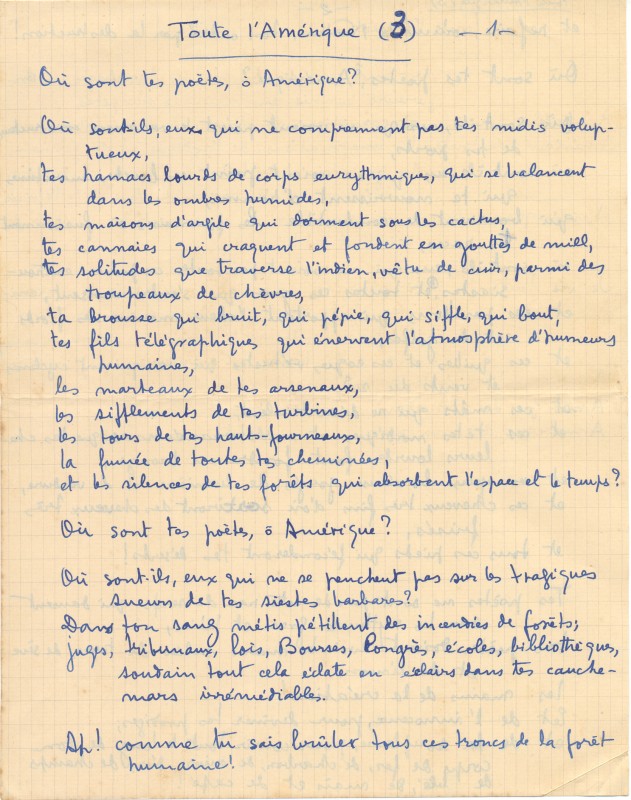 Toute l'Amérique (3) -1-
Où sont tes poètes, ô Amérique?
Où sont-ils, eux qui ne comprennent pas tes midis volup-
tueux,
tes hamacs lourds de corps eurythmiques, qui se balancent
dans les ombres humides,
tes maisons d'argile qui dorment sous les cactus,
tes cannaies qui craquent et fondent en gouttes de miel,
tes solitudes que traverse l'indien, vêtu de cuir, parmi des
troupeaux de chèvres,
ta brousse qui bruit, qui pépie, qui siffle, qui bout,
tes fils télégraphiques qui énervent l'atmosphère d'humeurs
humaines,
les marteaux de tes arsenaux,
les sifflements de tes turbines,
les tours de tes hauts-fourneaux,
la fumée de toutes tes cheminées,
et les silences de tes forêts qui absorbent l'espace et le temps?
Où sont tes poètes, ô Amérique?
Où sont-ils, eux qui ne se penchent pas sur les tragiques
sueurs de tes siestes barbares?
Dans ton sang métis pétillent des incendies de forêts;
juges, tribunaux, lois, Bourses, Congrès, écoles, bibliothèques,
soudain tout cela éclate en éclairs dans tes cauche-
mars irrémédiables.
Ah! comme tu sais brûler tous ces troncs de la forêt
humaine!